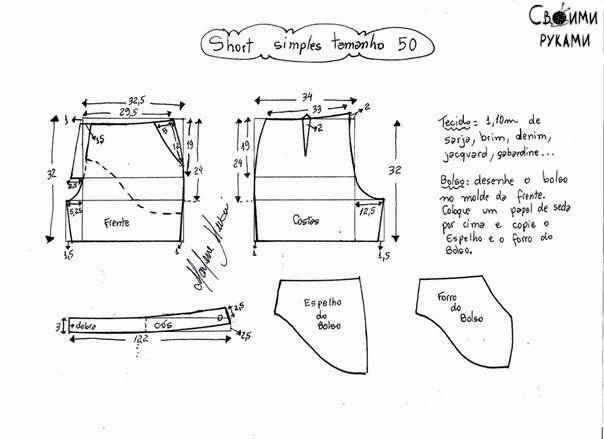 Своими
руками
Short simples tamanho 50
32,5
29,5
1
1,5
5
12
19
24
32
5,25
Frente
1,5
1
34
33
2
2
19
24
32
12,5
Costas
1
1,5
Tecido: 1,10m de
sarja, brim, denim,
jacquard, gabardine...
Bolso: desenhe o bolso
no molde da frente.
Coloque um papel de seda
por cima e copie o
Espelho e o forro do
Bolso.
3
dobra
cós
2,5
2,5
122
Espelho
do
Bolso
Forro
do
Bolso